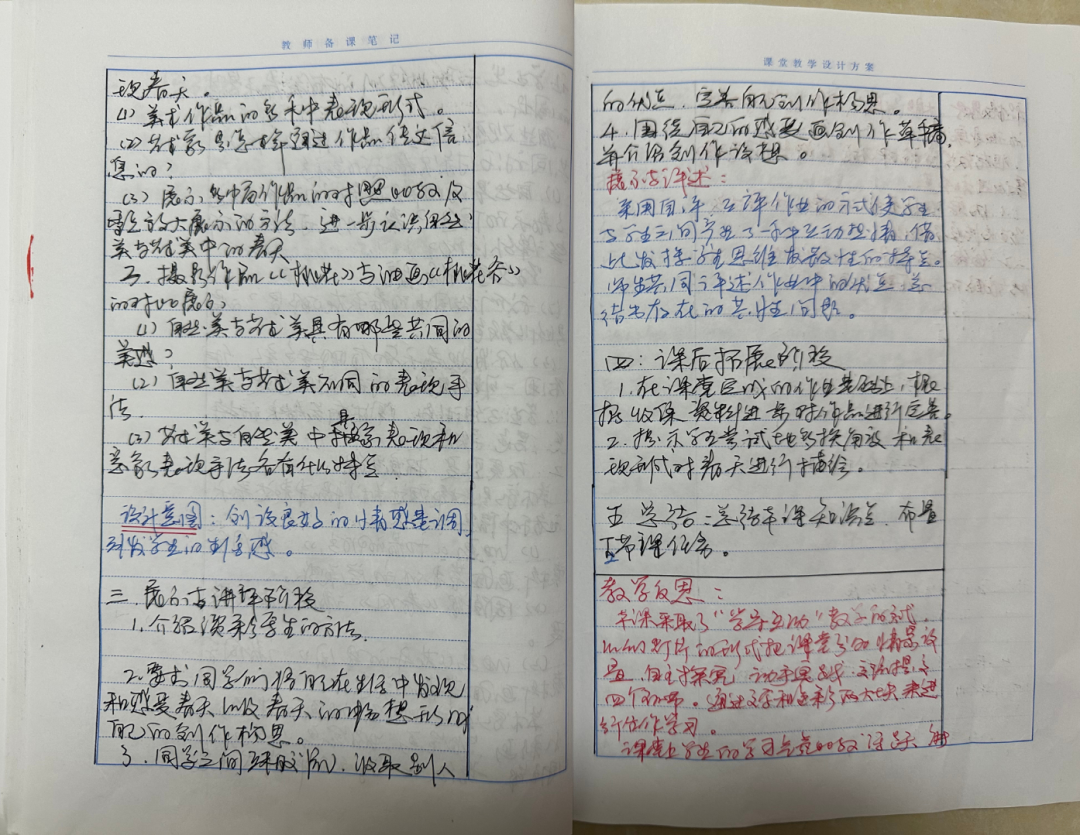 教师备课笔记
现春天。
(1) 美术作品的多种表现形式。
(2) 艺术家是怎样通过作品传达信
息的?
(3) 展示多幅作品的对照比较及
放大展示的方法,进一步认识自然
美与艺术美中的春天
5. 摄影作品《桃花》与油画《桃花谷》
的对比展示
(1) 自然美与艺术美具有哪些共同的
美感?
(2) 自然美与艺术美不同的表现手
法.
(3) 艺术美与自然美中具象表现和
意象表现手法各有什么特点
设计意图:创设良好的情感基调
引发学生的创作感。
三. 展示与讲评阶段
1. 介绍演彩写生的方法.
2. 要求同学们将自己在生活中发现
和感受春天以及春天的畅想形成
自己的创作构思。
3. 同学之间互相交流,收取别人
课堂教学设计方案
的优点,完善自己创作构思。
4. 围绕自己的感受画创作草稿,
并介绍创作设想。
展示与评述:
采用自评、互评作业的方式使学生
与学生之间产生了一种互动热情,借
此发挥学生思维发散性的特点。
师生共同评述作业中的优点,总
结出存在的共性问题。
四:课后拓展阶段
1. 在课堂完成的作业基础上,根
据收集资料进一步对作品进行完善。
2. 提示学生尝试地多换角度和表
现形式对春天进行描绘。
五 总结:总结本课知识点,布置
下节课任务。
教学反思:
本课采取了“学导互动”教学的形式,
以幻灯片的形式把课堂分为情景设
置,自主探究,动手实践,交流提高
四个环节。通过文字和色彩两大块来进
行创作学习。
课堂上学生的学习气氛比较活跃